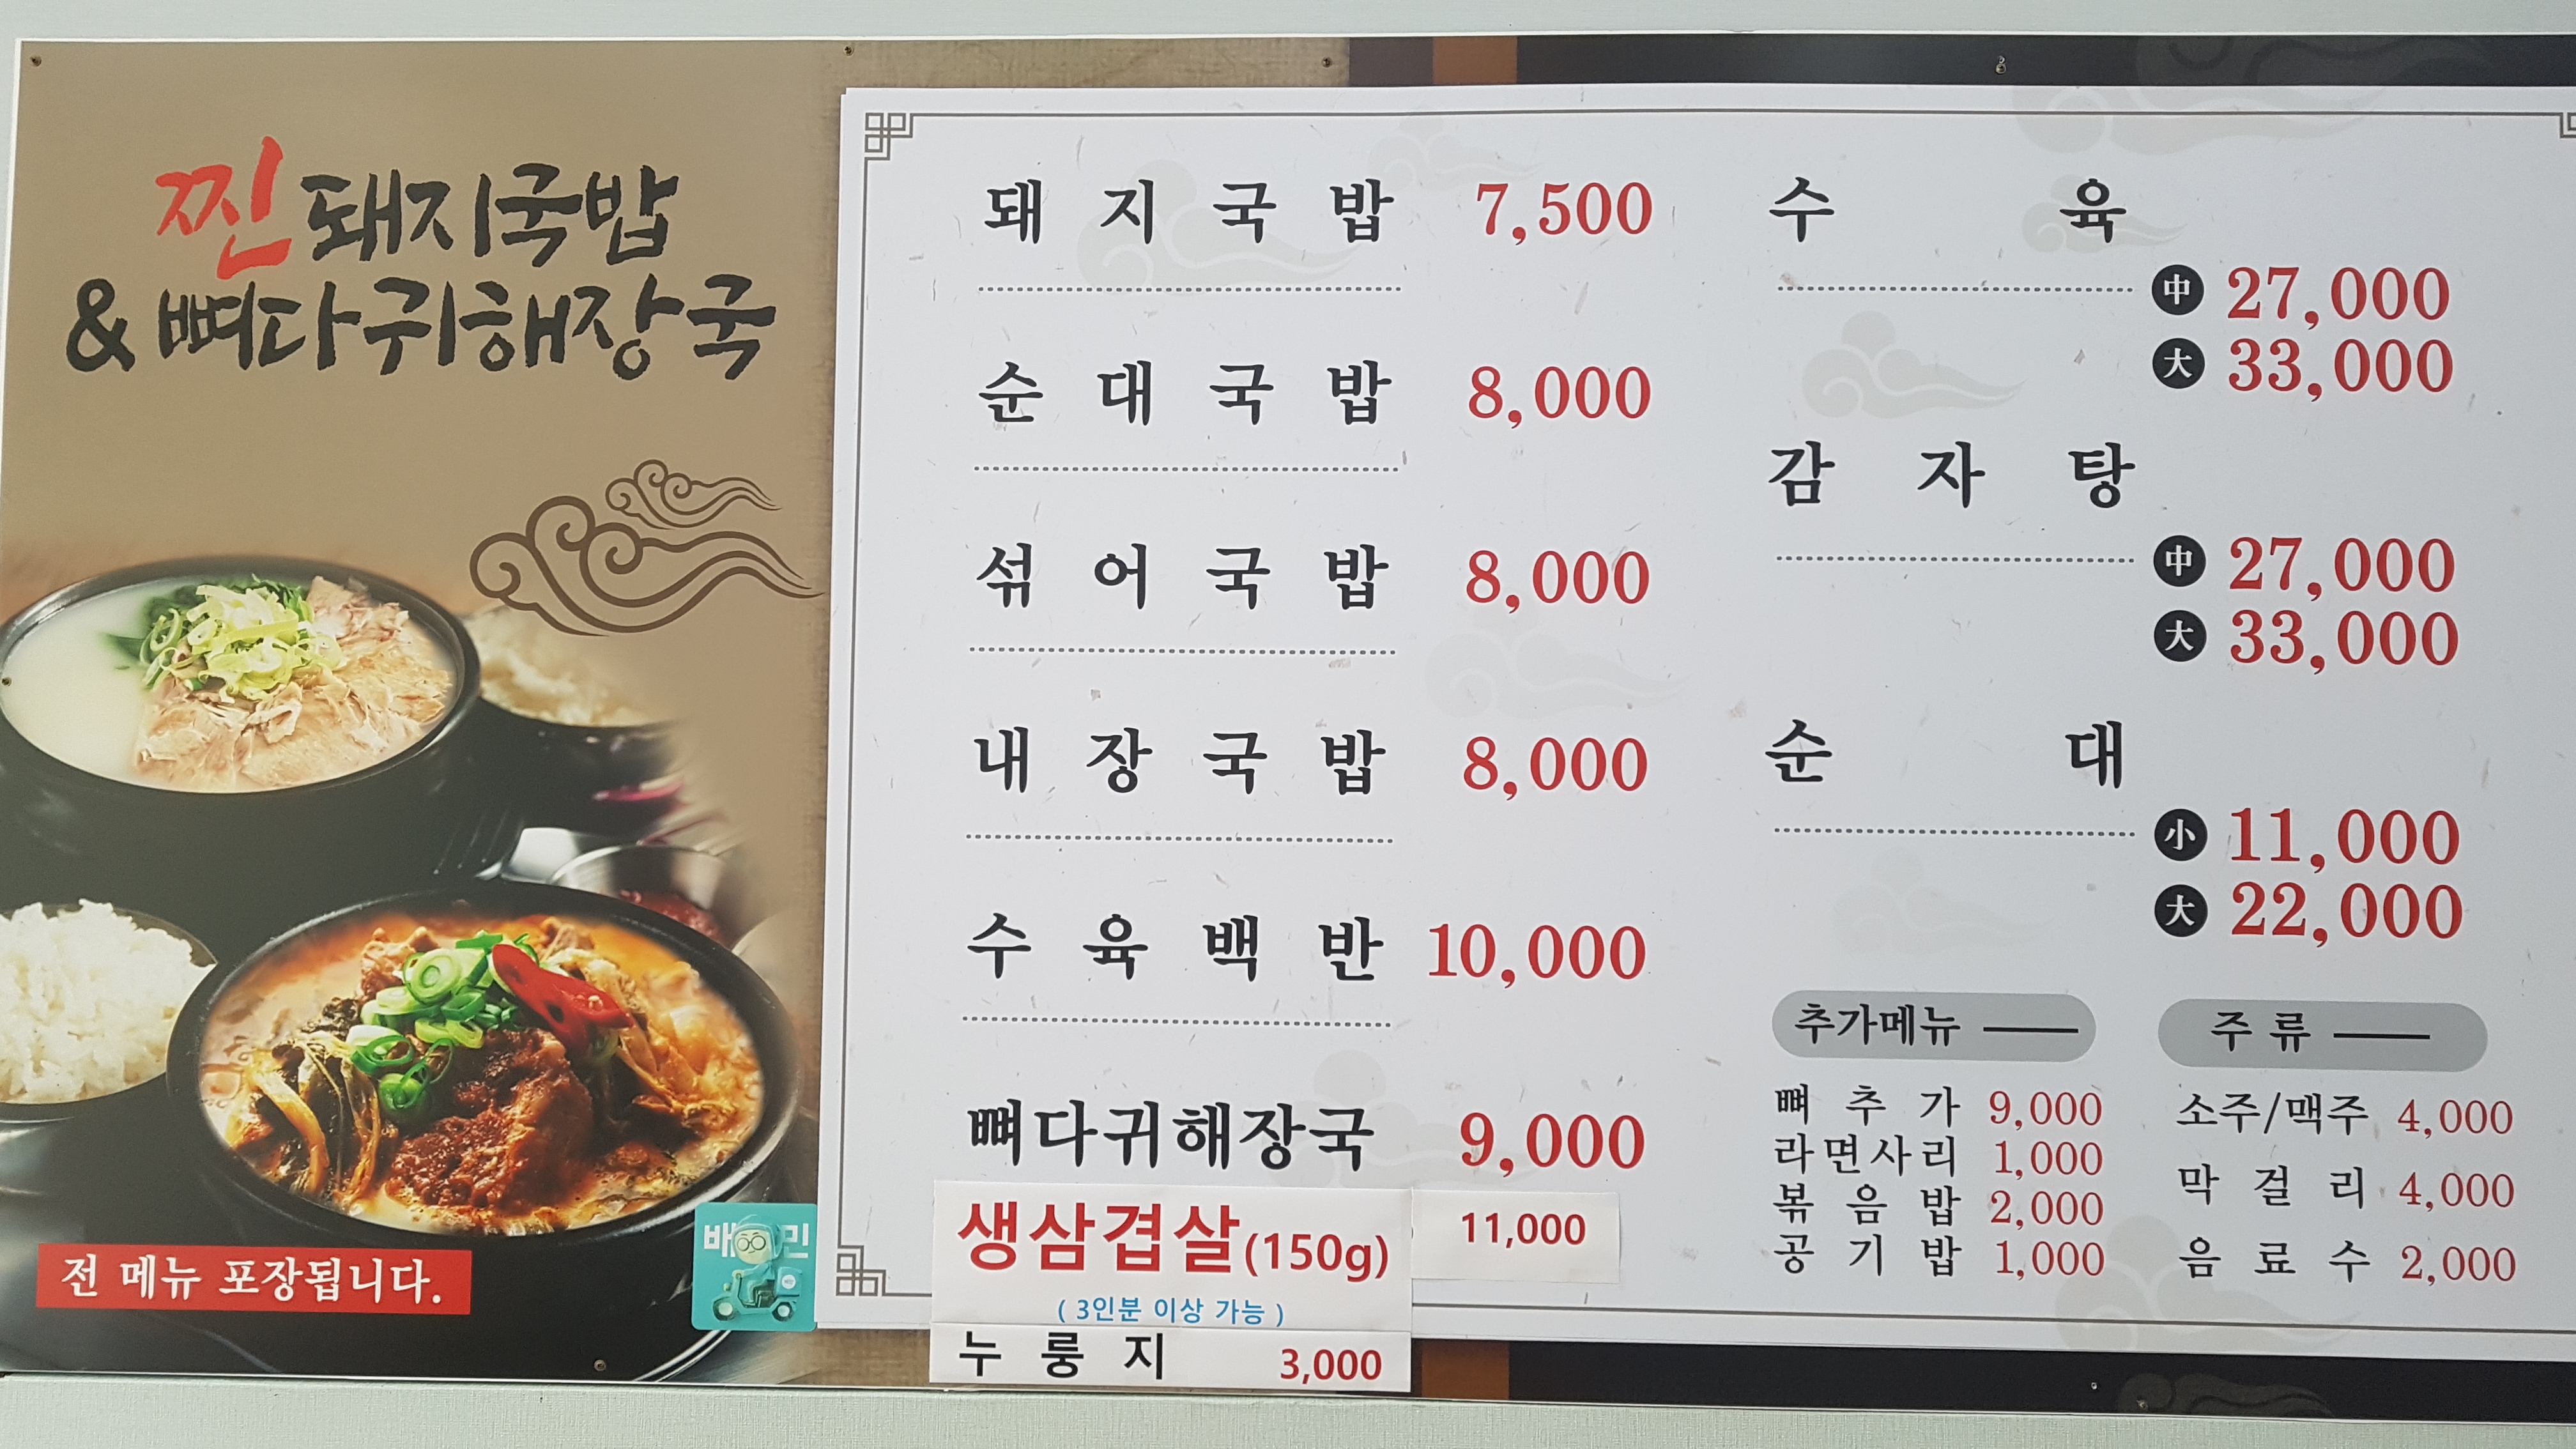 찐돼지국밥
&뼈다귀해장국
전 메뉴 포장됩니다.
배민
돼지국밥 7,500
순대국밥 8,000
섞어국밥 8,000
내장국밥 8,000
수육백반 10,000
뼈다귀해장국 9,000
생삼겹살(150g) 11,000
( 3인분 이상 가능 )
누룽지 3,000
수육
中 27,000
大 33,000
감자탕
中 27,000
大 33,000
순대
小 11,000
大 22,000
추가메뉴
뼈추가 9,000
라면사리 1,000
볶음밥 2,000
공기밥 1,000
주류
소주/맥주 4,000
막걸리 4,000
음료수 2,000